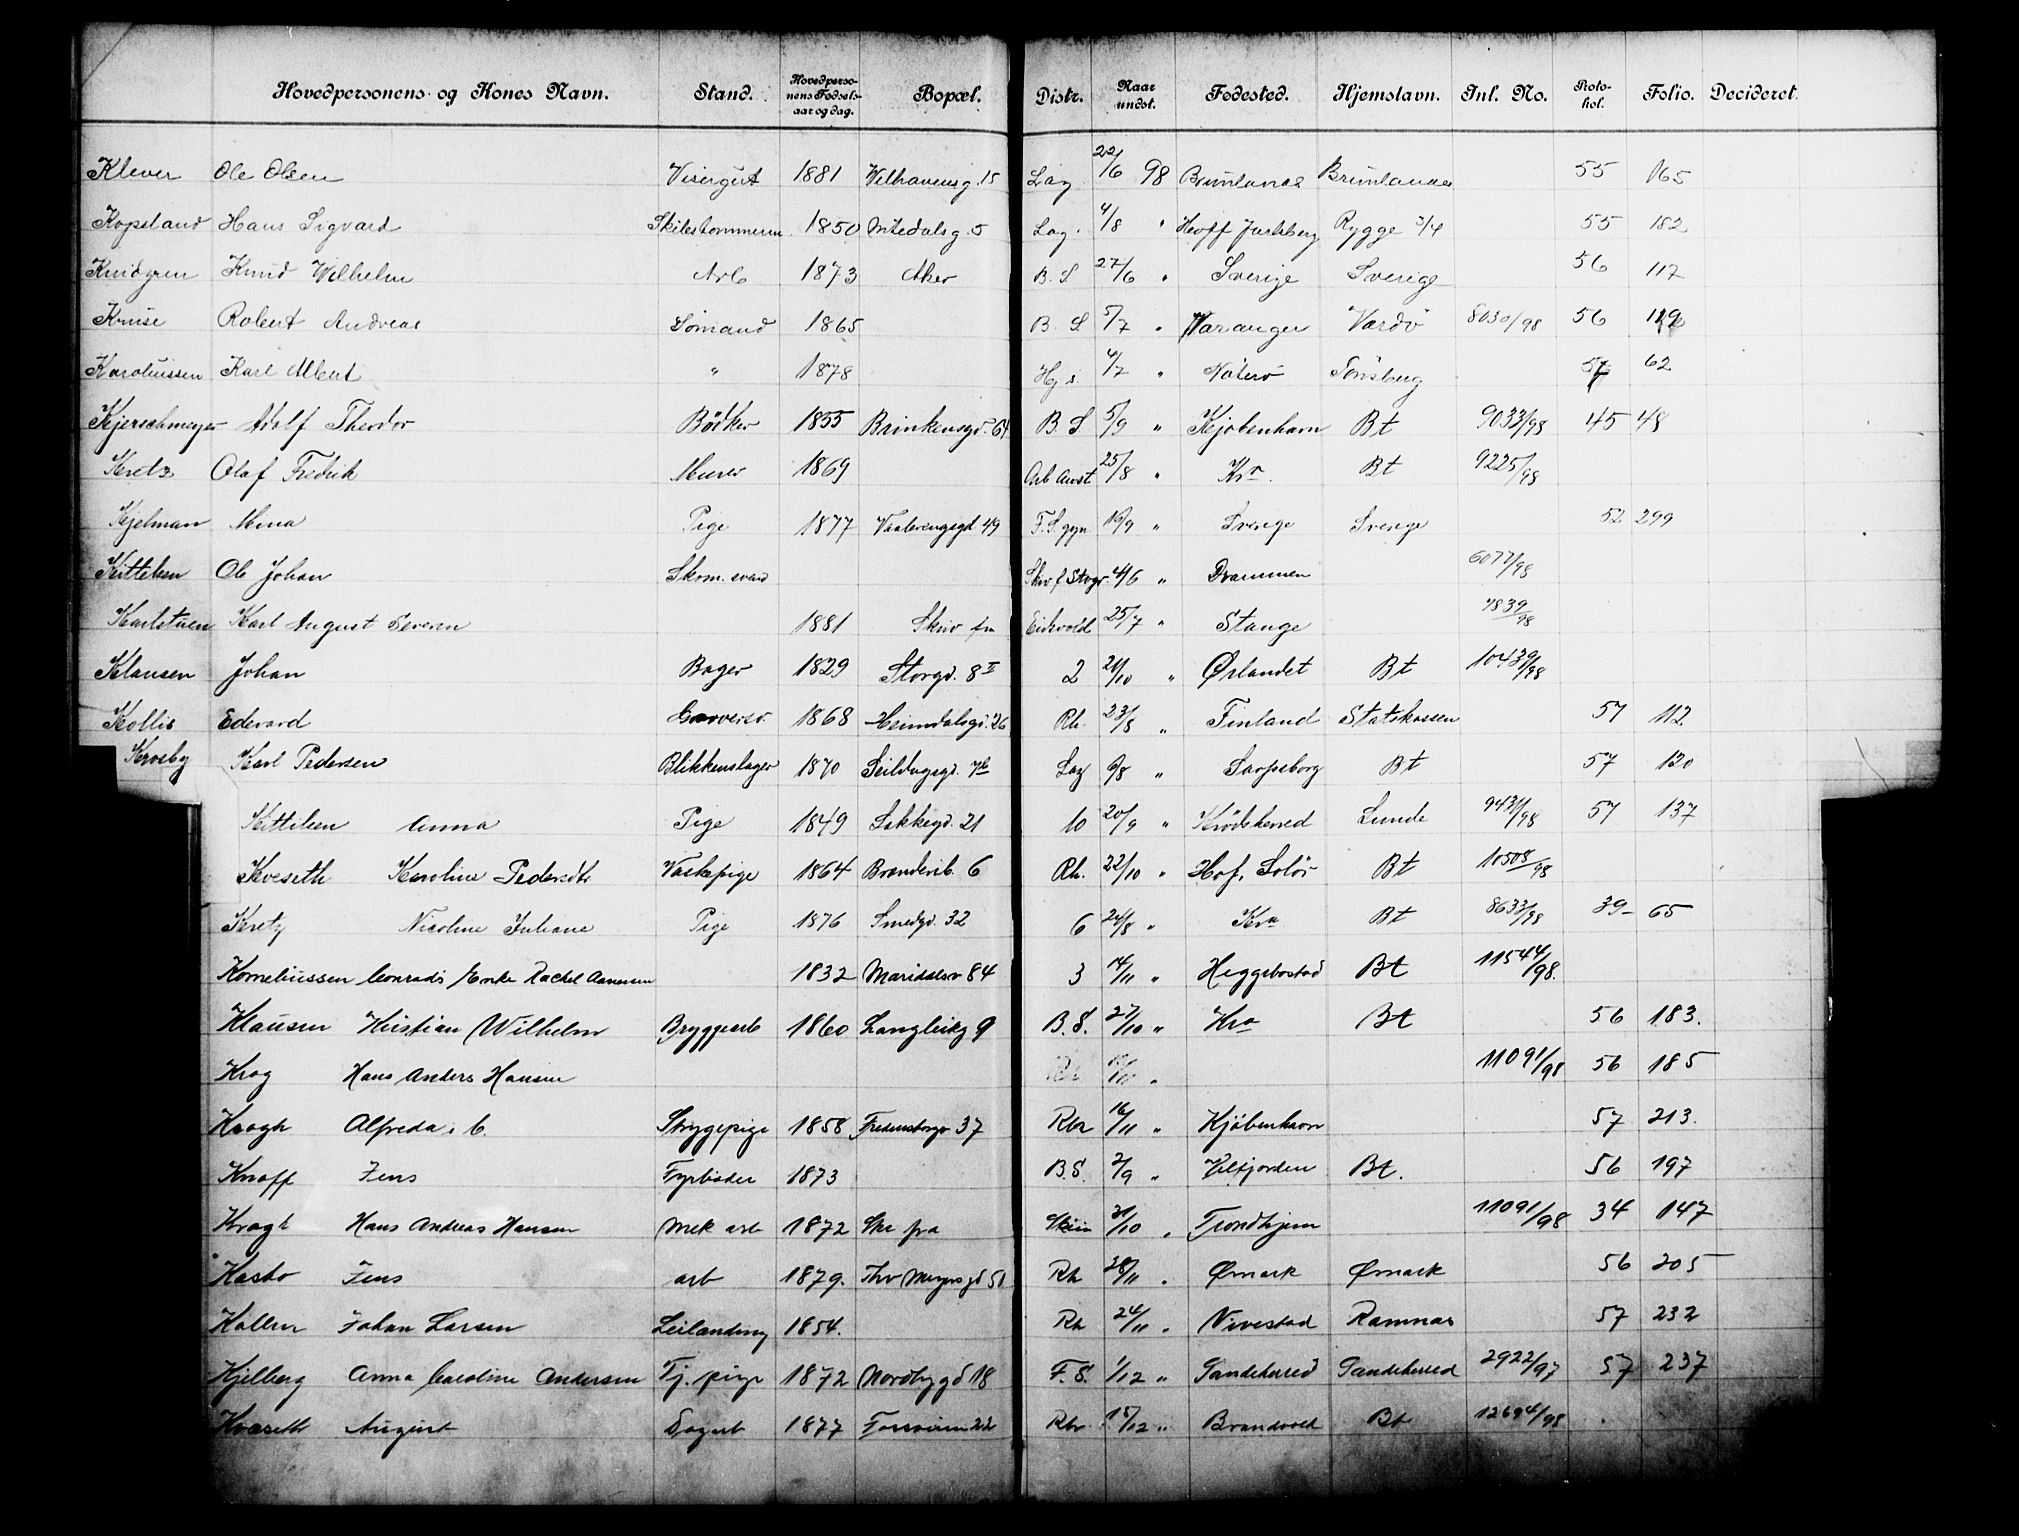 Hovedpersonens og Kones Navn. Stand. Hovedpersonens Fødselsaar og dag. Bopæl. Distr. Naar undst. Fødested. Hjemstavn. Inl. No. Protokol. Folio. Decideret.
Klever Ole Olsen Visergut 1881 Welhavensg. 15 Lag 22/6 98 Brunlanæs Brunlanæs 55 165
Kopsland Hans Sigvard 1850 5 Lag. 4/8 " Jarlsberg Rygge 3/4 55 182
Knud Wilhelm Arb 1873 Aker B. S. 27/6 " Sverige Sverige 56 117
Kruse Robert Andreas Sömand 1865 B. S. 5/7 " Varanger Vardö 8030/98 56
Karoliussen Karl Albert " 1878 Hj. s. 4/7 " Nöterö Tönsberg 57 62
Kjerschmeyer Adolf Theodor Bödker 1855 Brinkensgd. 64 B. S. 5/9 " Kjøbenhavn Bt 9033/98 45 48
Kretz Olaf Fredrik Murer 1869 Arb anst 25/8 " Kra. Bt 9225/98
Kjelman Mina Pige 1877 Vaalerengsgd 49 F. S. gyn 10/9 " Sverige Sverige 52 299
Kittilsen Ole Johan Skom. svend 4/6 " Drammen 6077/98
Karlstuen Karl August Severin 1881 Skriv fra Eidsvold 25/7 " Stange 7839/98
Klausen Johan Bager 1829 Storgd. 8 II 2 21/10 " Ørlandet Bt 10439/98
Kollis Edevard Garversv. 1868 Heimdalsgd. 26 Rh. 23/8 " Finland Statskassen 57 112
Krosby Karl Pedersen Blikkenslager 1870 Seildugsgd. 7b Lag 6/8 " Sarpsborg Bt 57 120
Kittilsen Anna Pige 1849 Lakkegd. 21 10 20/9 " Krödsherred Lunde 9431/98 57 137
Kveseth Karoline Pedersdtr Vaskepige 1864 6 Rh. 22/10 " Hof, Solör Bt 10508/98
Kretz Nicoline Juliane Pige 1876 Smedgd. 32 6 24/8 " Kra Bt 8633/98 39 – 65
Korneliussen Conrads Enke Rachel Aanensen 1832 Maridalsv 84 3 14/11 " Heggebostad Bt 11544/98.
Klausen Kristian Wilhelm Bryggearb 1860 Langleikg 9 B. S. 27/10 " Kra Bt 56 183.
Krog Hans Anders Hansen " 11091/98 56 185
Krogh Alfreda C. Strygepige 1858 Fredensborgv 37 Rh 16/11 " Kjöbenhavn 57 213.
Knoff Jens Fyrböder 1873 B. S. 2/9 " Velfjorden Bt. 56 197
Krogh Hans Andreas Hansen Mek arb 1872 Skr fra Skien 31/10 " Trondhjem 11091/98 34 147
Kasbo Jens arb 1879. Thv Meyers gd 51 Rh 28/11 " Ømark Ømark 56 205
Kollen Johan Larsen Leilænding 1854. Rh 24/11 " Vivestad Ramnæs 57 232
Kjelberg Anna Caroline Andersen Tj. pige 1872 Nordbygd 18 F. S. 1/12 " Sandeherred Sandeherred 2922/97 57 237
Kvæseth August Dagarb 1877 22 Rh 15/12 " Brandvold Bt 12694/98